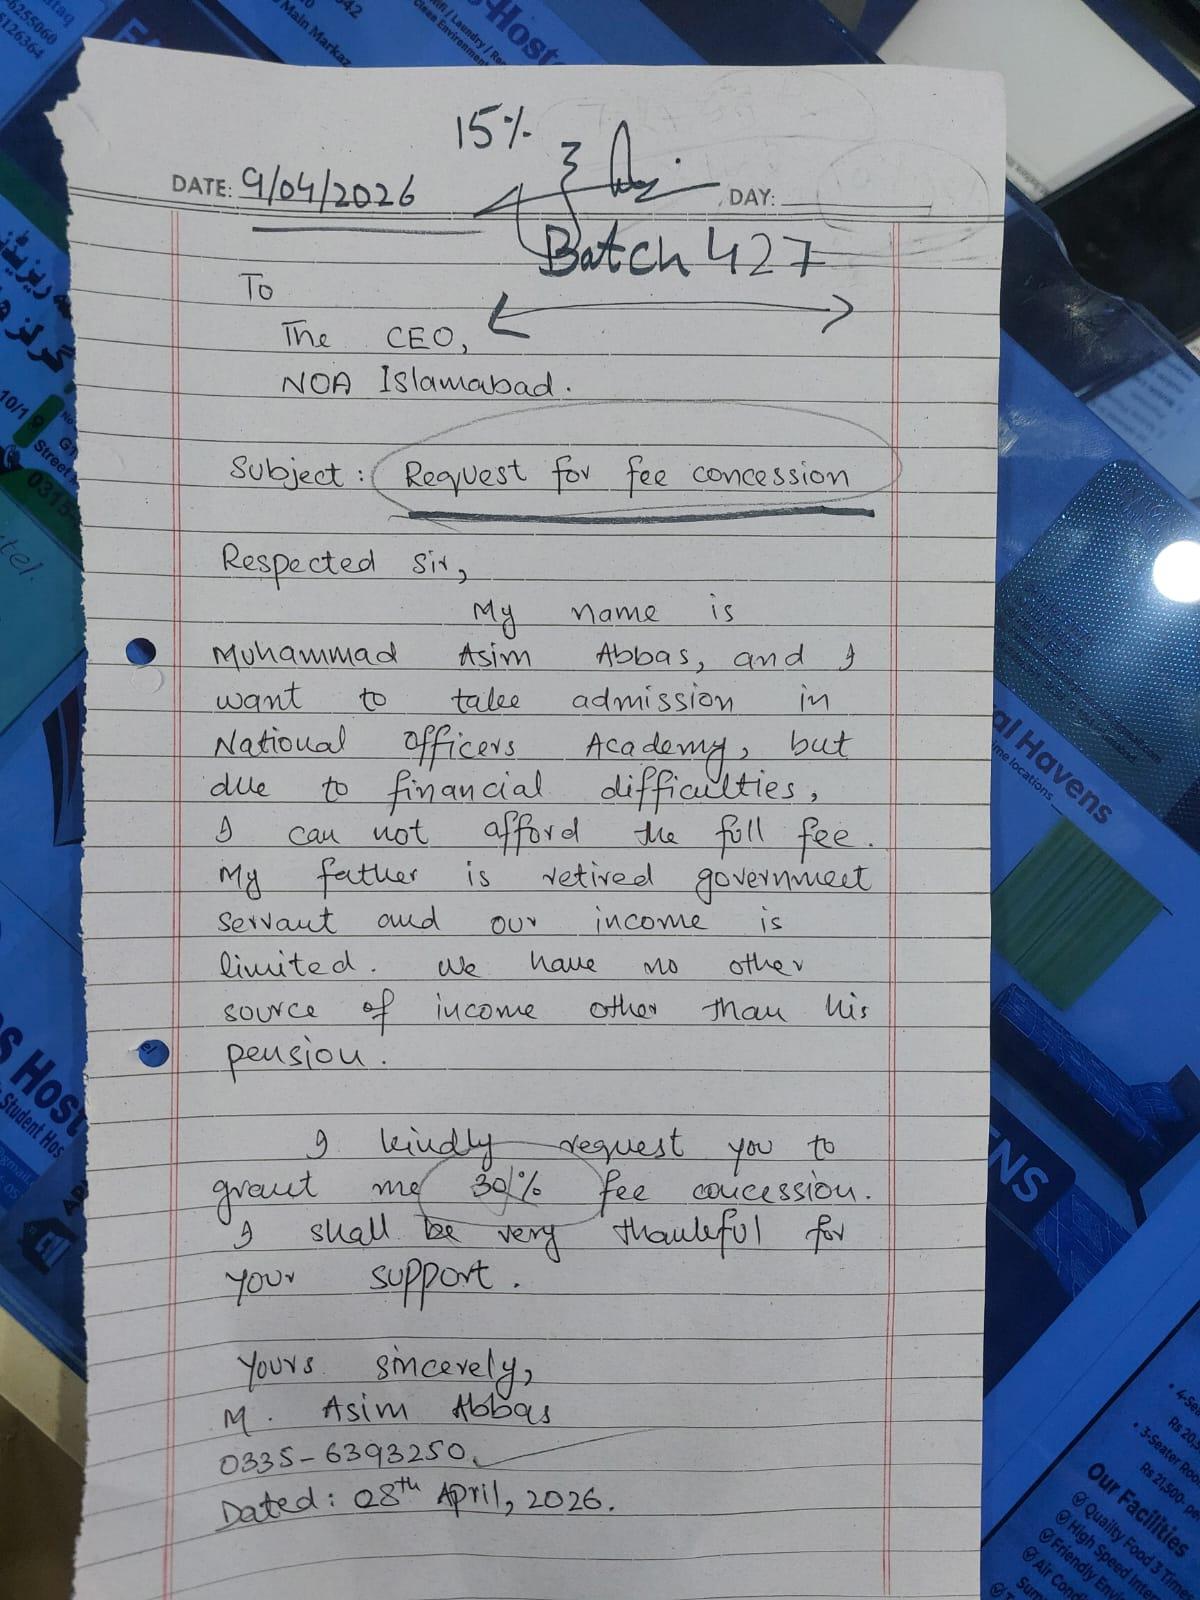 15%
DATE: 9/04/2026
DAY:
Batch 427
To
The CEO,
NOA Islamabad.
Subject: Request for fee concession
Respected Sir,
My name is
Muhammad Asim Abbas, and I
want to take admission in
National Officers Academy, but
due to financial difficulties,
I can not afford the full fee.
My father is retired government
servant and our income is
limited. We have no other
source of income other than his
pension.
I kindly request you to
grant me 30% fee concession.
I shall be very thankful for
your support.
Yours sincerely,
M. Asim Abbas
0335-6393250
Dated: 08th April, 2026.
6255060
6126364
Main Markaz
Wifi / Laundry /
Clean Environment
Host
10/1
Street
0315
tel.
S Host
Student Hos
@gmail
al Havens
me locations
ENS
3-Seater Roo
Rs 21,500
Our Facilities
Quality Food 3 Times
High Speed Inter
Friendly Envi
Air Cond